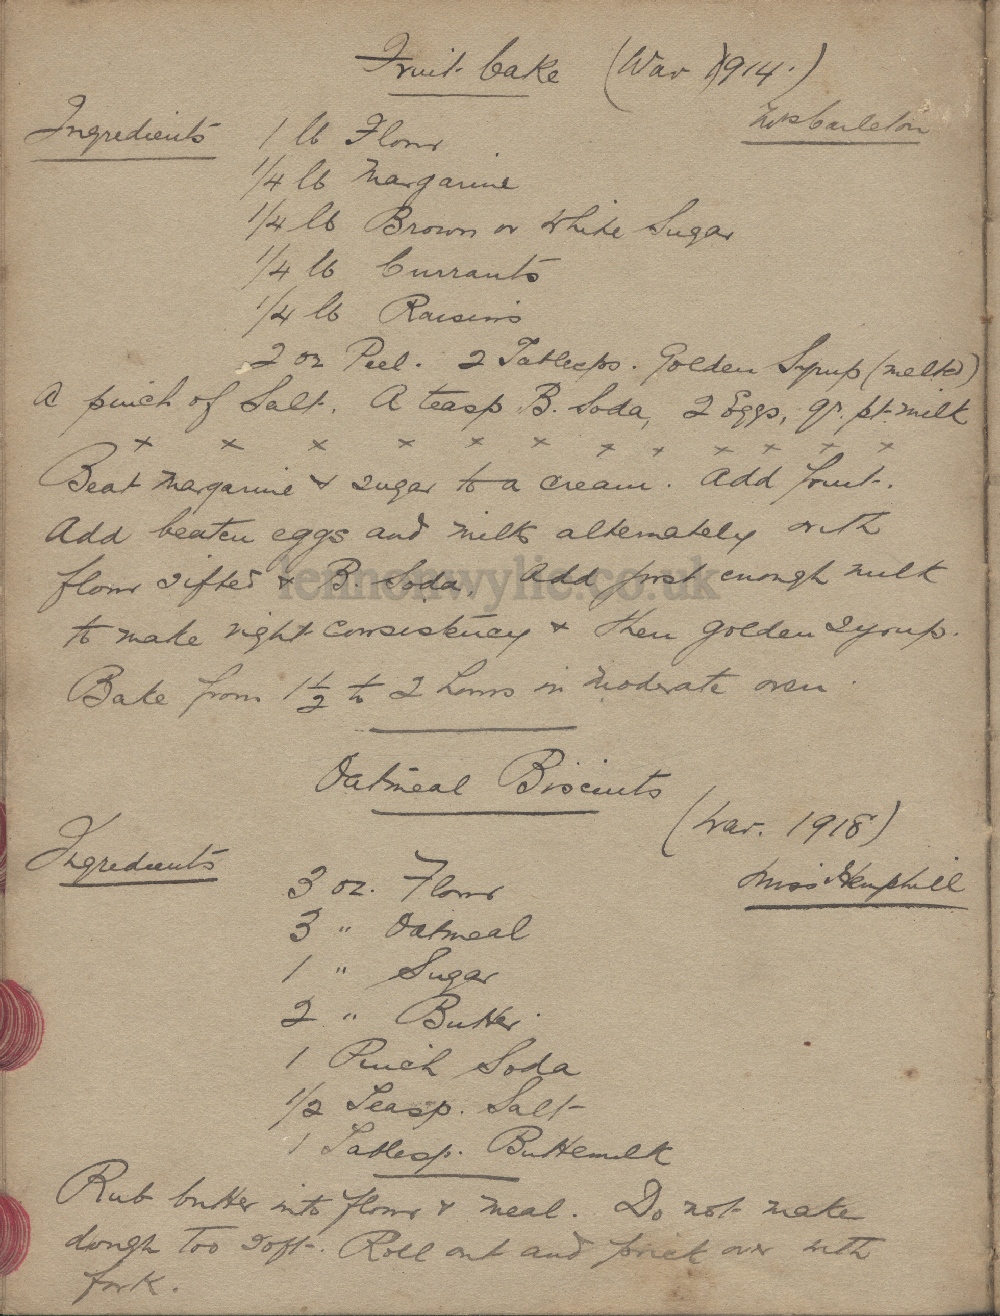 Fruit Cake (War 1914.)
Mrs Carleton
Ingredients 1 lb Flour
1/4 lb Margarine
1/4 lb Brown or White Sugar
1/4 lb Currants
1/4 lb Raisins
2 oz Peel. 2 Tablesps. Golden Syrup (melted)
A pinch of Salt. A teasp B. Soda, 2 Eggs, qr. pt. milk
x x x x x x x x x x x x
Beat Margarine & sugar to a cream. Add fruit.
Add beaten eggs and milk alternately with
flour sifted & B. Soda. Add just enough milk
lennonwylie.co.uk
to make right consistency & then golden syrup.
Bake from 1 1/2 to 2 hours in moderate oven.
Oatmeal Biscuits
(War. 1918)
Ingredients
Miss Hemphill
3 oz. Flour
3 " Oatmeal
1 " Sugar
2 " Butter.
1 Pinch Soda
1/2 Teasp. Salt
1 Tablesp. Buttemilk
Rub butter into flour & meal. Do not make
dough too soft. Roll out and prick over with
fork.